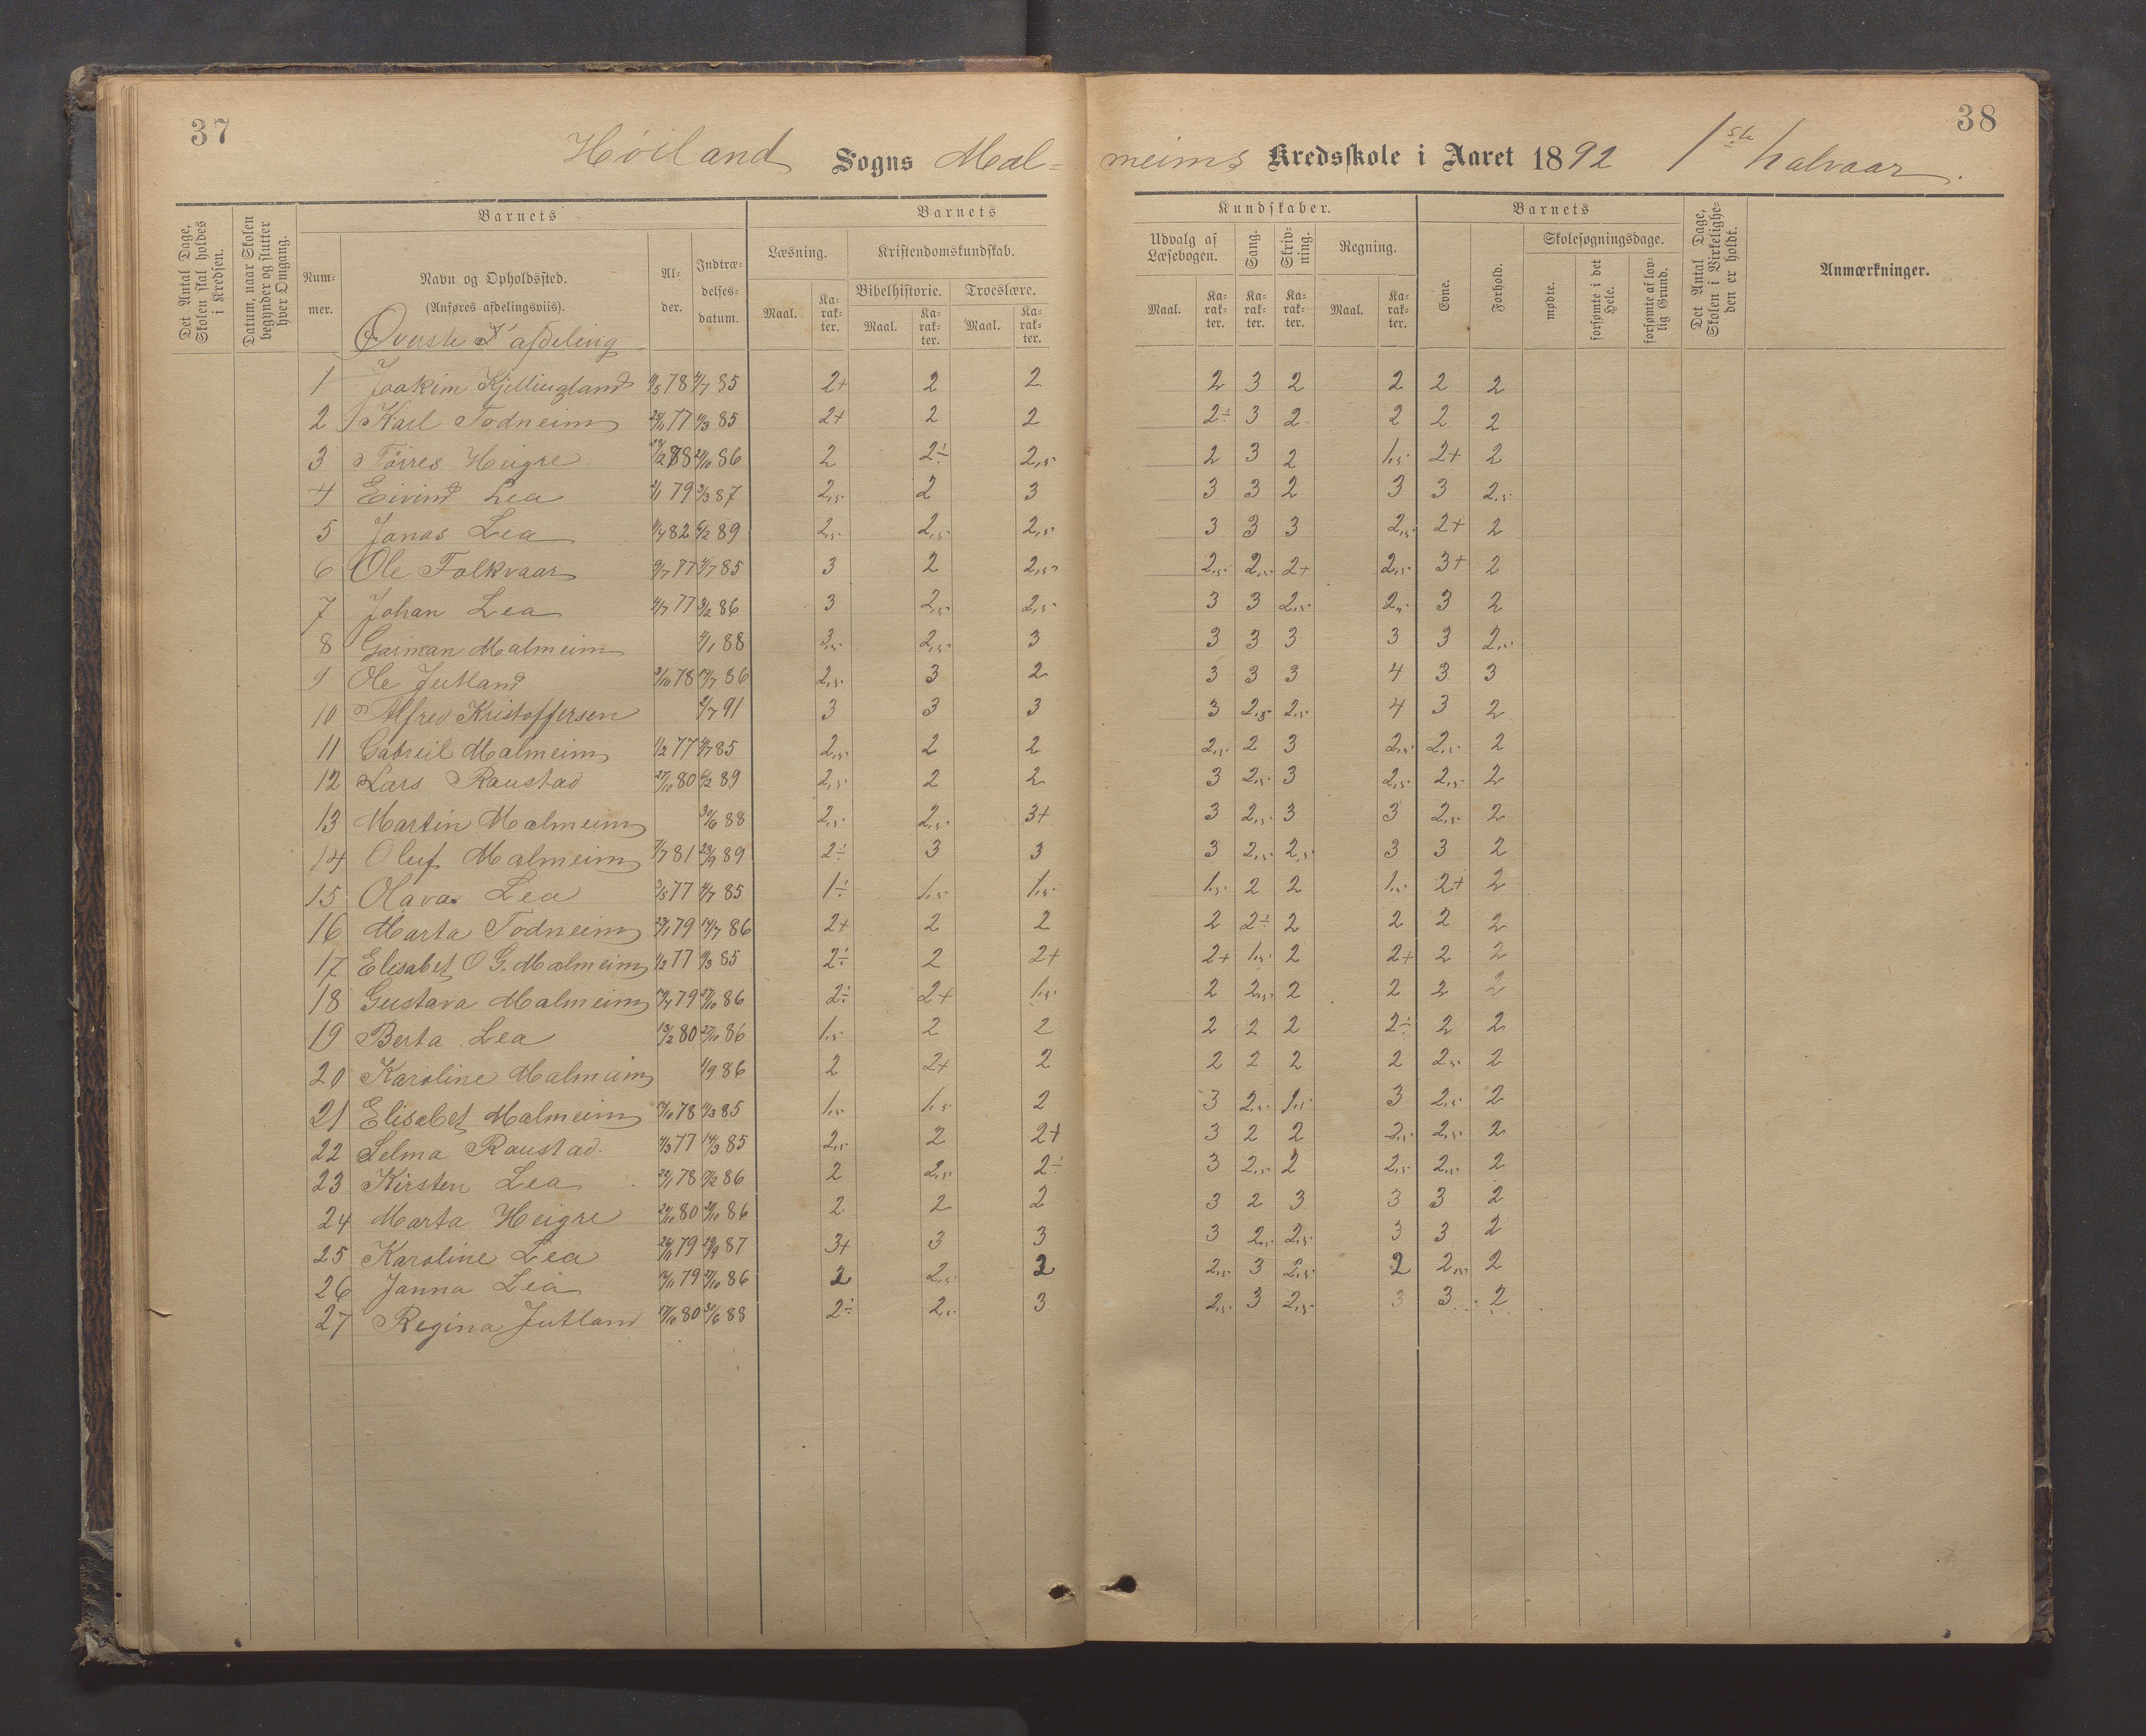 37
38
Høiland Sogns Mal-
meims Kredsskole i Aaret 1892 1ste halvaar.
Det Antal Dage, Skolen skal holdes i Kredsen.
Datum, naar Skolen begynder og slutter hver Omgang.
Barnets
Barnets
Kundskaber.
Barnets
Num-mer.
Navn og Opholdssted.
(Anføres afdelingsviis).
Al-der.
Indtræ-delses-datum.
Læsning.
Kristendomskundskab.
Bibelhistorie.
Troeslære.
Maal. Ka-rak-ter. Maal. Ka-rak-ter. Maal. Ka-rak-ter.
Udvalg af Læsebogen.
Sang.
Skriv-ning.
Regning.
Maal. Ka-rak-ter. Ka-rak-ter. Ka-rak-ter. Maal. Ka-rak-ter.
Evne.
Forhold.
Skolesøgningsdage.
mødte.
forsømte i det Hele.
forsømte af lov-lig Grund.
Det Antal Dage, Skolen i Virkelighe-den er holdt.
Anmærkninger.
Øverste afdeling
1 Joakim Kjellingland 78 4/7 85 2+ 2 2 2 3 2 2 2 2
2 Karl Todneim 77 85 2+ 2 2 2÷ 3 2 2 2 2
3 Törres Heigre 27/10 86 2 2÷ 2,5 2 3 2 1,5 2+ 2
4 Eivind Lea 2/1 79 87 2,5 2 3 3 3 2 3 3 2,5
5 Jonas Lea 82 6/2 89 2,5 2,5 2,5 3 3 3 2,5 2+ 2
6 Ole Folkvaar 77 4/7 85 3 2 2,5 2,5 2,5 2+ 2,5 3+ 2
7 Johan Lea 4/7 77 86 3 2,5 2,5 3 3 2,5 2,5 3 2
8 Garman Malmeim 4/1 88 2,5 3 3 3 3 3 3 2,5
9 Ole Jutland 3/10 78 14/7 86 2,5 3 2 3 3 3 4 3 3
10 Alfred Kristoffersen 2/7 91 3 3 3 3 2,5 2,5 4 3 2
11 Gabreil Malmeim 1/2 77 4/7 85 2,5 2 2 2,5 2 3 2,5 2,5 2
12 Lars Raustad 27/10 80 6/2 89 2,5 2 2 3 2,5 3 2,5 2,5 2
13 Martin Malmeim 30/6 88 2,5 2,5 3+ 3 2,5 3 3 2,5 2
14 Oluf Malmeim 7/7 81 23/9 89 2÷ 3 3 3 2,5 2,5 3 3 2
15 Olava Lea 3/5 77 4/7 85 1÷ 1,5 1,5 1,5 2 2 1,5 2+ 2
16 Marta Todneim 23/1 79 14/7 86 2+ 2 2 2 2÷ 2 2 2 2
17 Elisabet O G. Malmeim 1/2 77 85 2÷ 2 2+ 2+ 1,5 2 2+ 2 2
18 Gustava Malmeim 79 27/10 86 2÷ 2+ 1,5 2 2,5 2 2 2 2
19 Berta Lea 13/2 80 27/10 86 1,5 2 2 2 2 2 2÷ 2 2
20 Karoline Malmeim 86 2 2+ 2 2 2 2 2 2,5 2
21 Elisabet Malmeim 78 85 1,5 1,5 2 3 2,5 1,5 3 2,5 2
22 Selma Raustad. 77 14/3 85 2,5 2 2+ 3 2 2 2,5 2,5 2
23 Kirsten Lea 22/1 78 86 2 2,5 2÷ 3 2,5 2 2,5 2,5 2
24 Marta Heigre 80 86 2 2 2 3 2 3 3 3 2
25 Karoline Lea 79 87 3+ 3 3 3 2,5 2,5 3 3 2
26 Janna Lea 79 27/10 86 2 2,5 2 2,5 3 2,5 2 2,5 2
27 Regina Jutland 80 30/6 88 2÷ 2,5 3 2,5 3 2,5 3 3 2